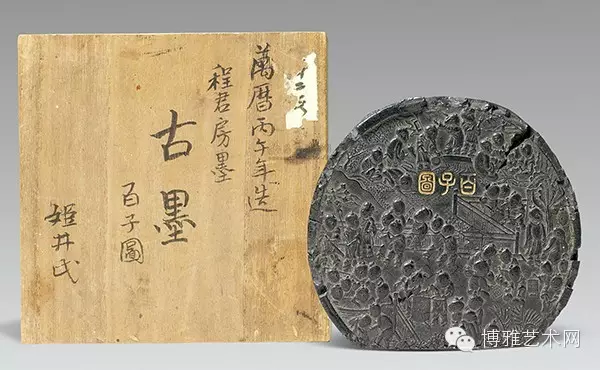 萬曆丙午年造
程君房墨
古墨
百子圖
姫井氏
百子圖
博雅艺术网